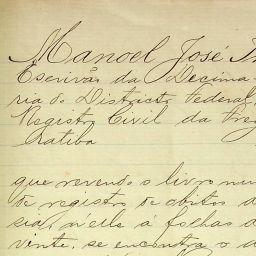 Manoel José
Escrivão da Decima
ria do Districto Federal,
Registro Civil da Freg
Iratiba
que revendo o livro num
de registro de obitos d
sia, n'elle á folhas d
vinte, se encontra o a